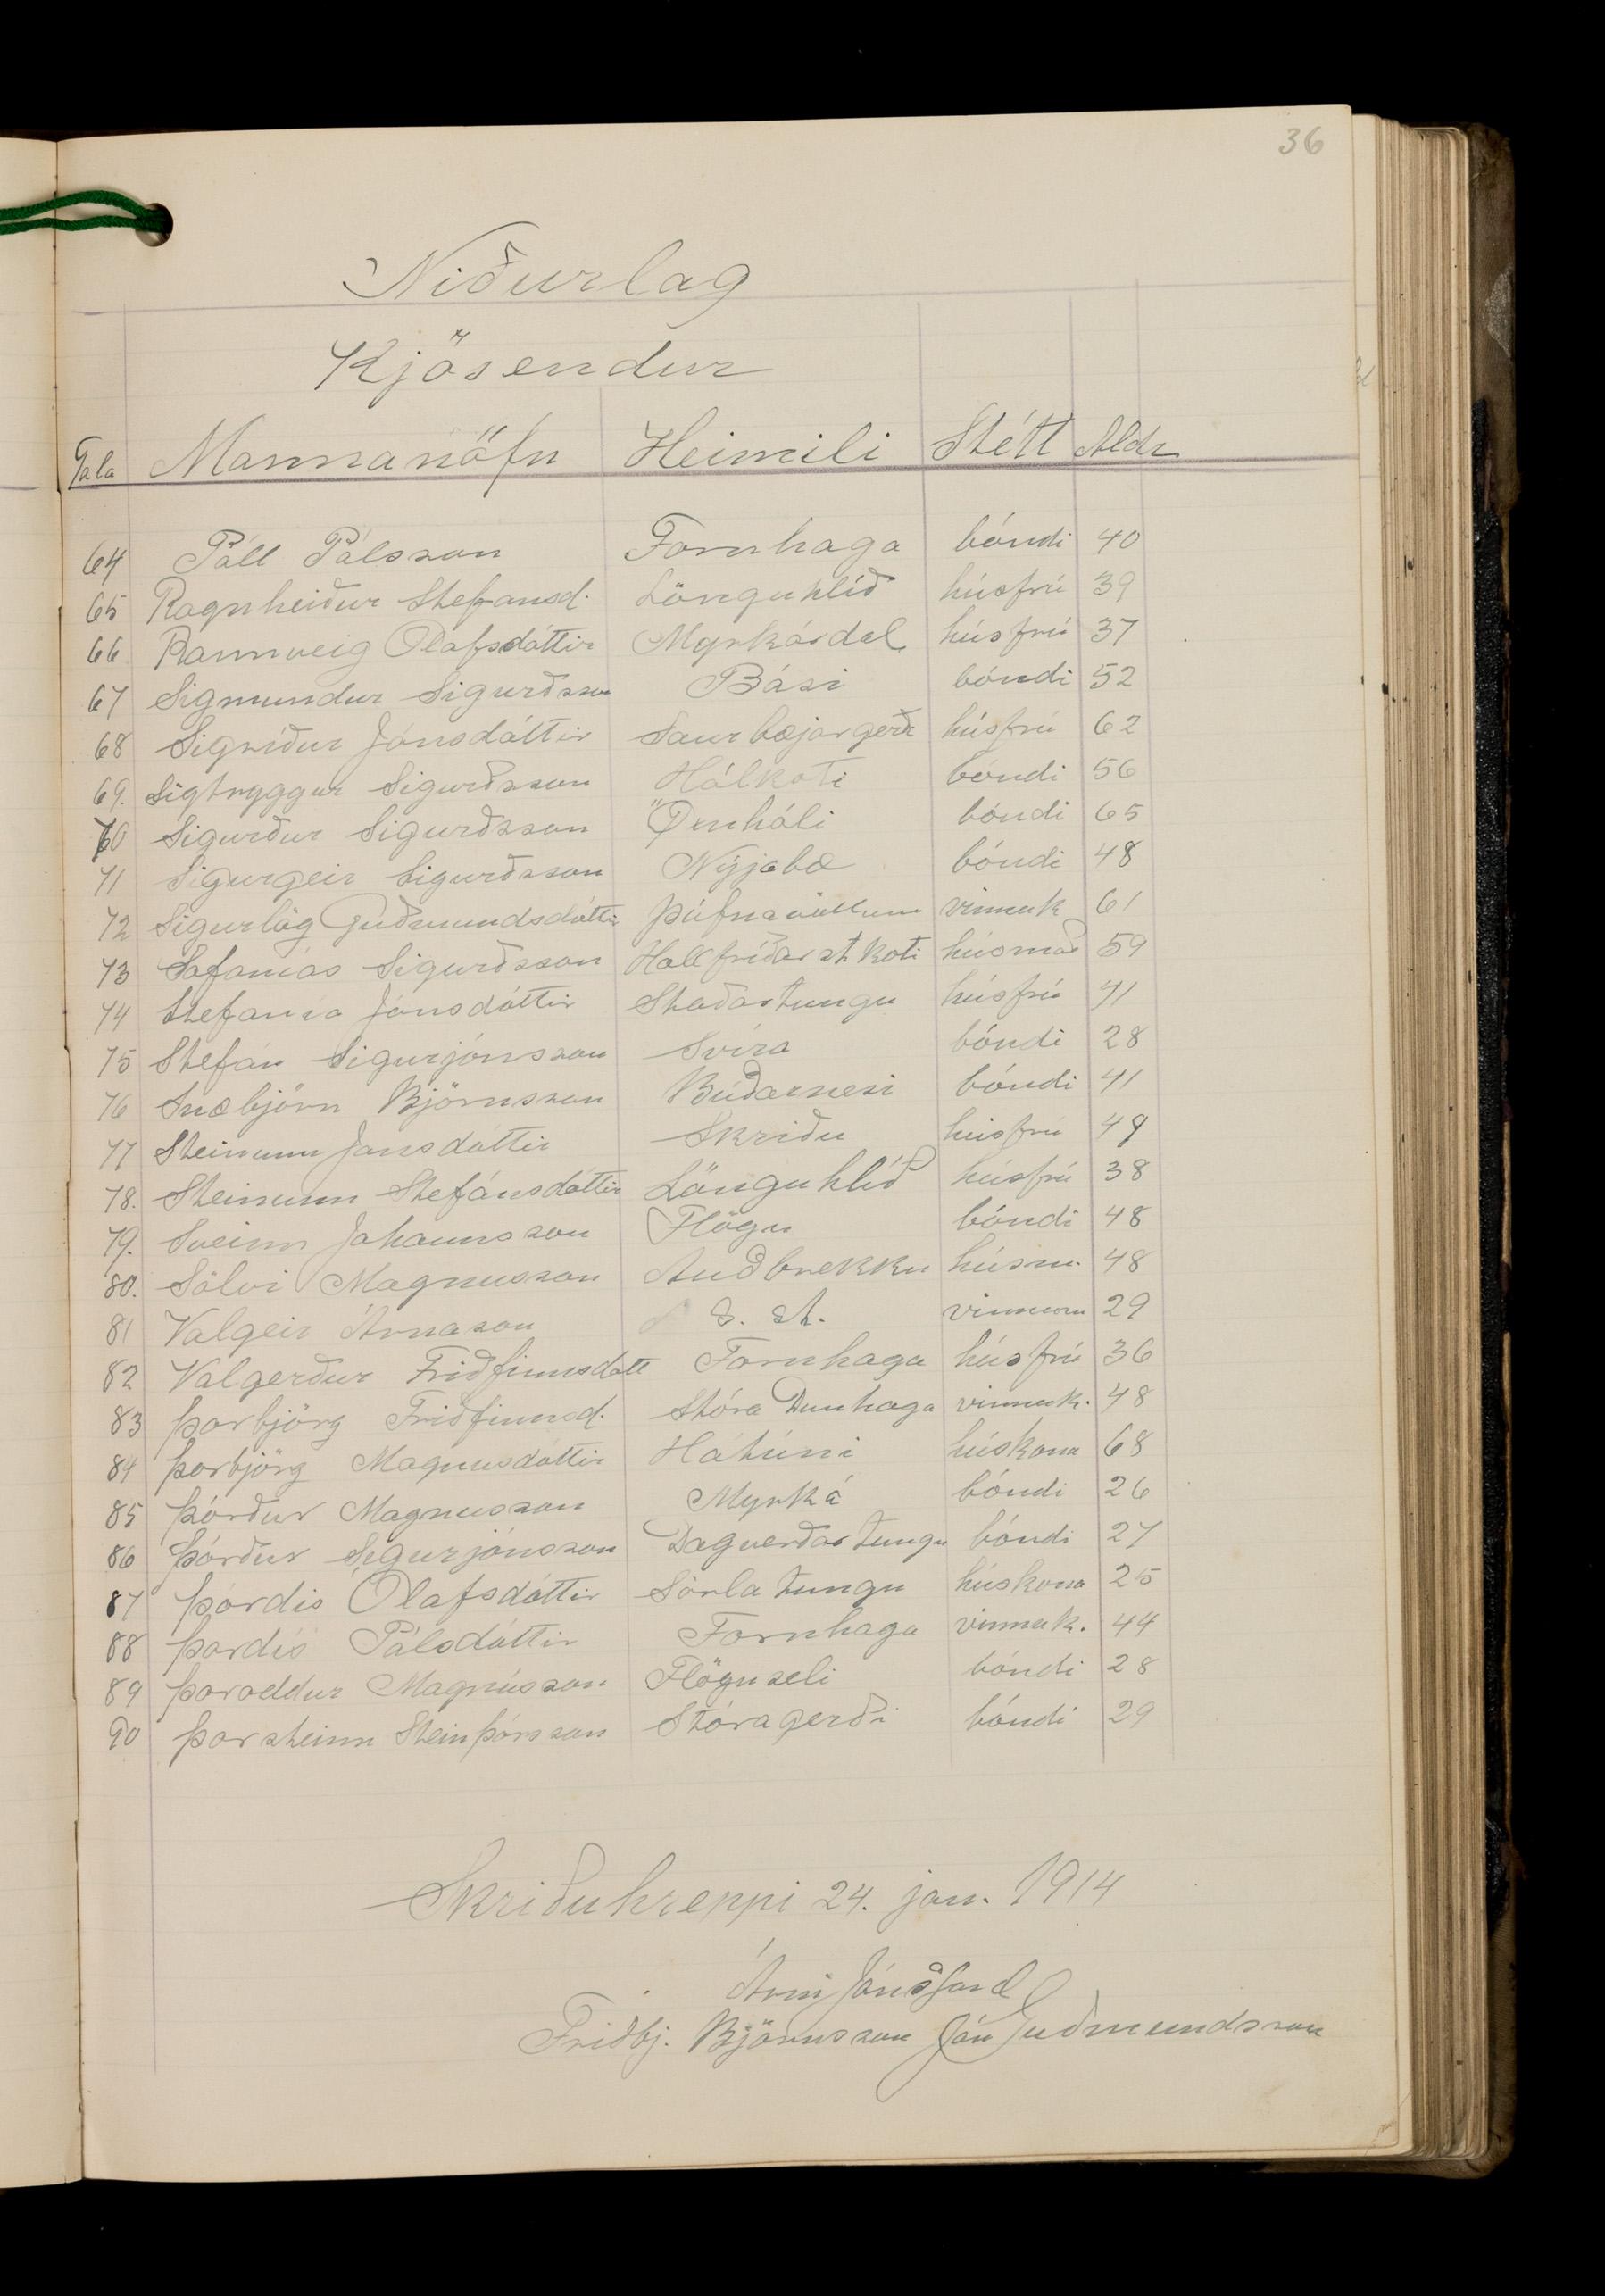 36
Niðurlag
Kjósendur
Tala Mannanöfn Heimili Stétt Aldr
64 Páll Pálsson Fornhaga bóndi 40
65 Ragnheiður Stefansd. Lönguhlíð húsfrú 39
66 Rannveig Ólafsdóttir Myrkárdal húsfrú 37
67 Sigmundur Sigurðsson Bási bóndi 52
68 Sigríður Jónsdóttir Saurbæjargerði húsfrú 62
69. Sigtryggur Sigurðsson Hálkoti bóndi 56
70 Sigurður Sigurðsson Öxnhóli bóndi 65
71 Sigurgeir Sigurðsson Nýjabæ bóndi 48
72 Sigurlög Guðmundsdóttir Þúfnavöllum vinnuk 61
73 Sofanías Sigurðsson Hallfríðarstkoti húsmað 59
74 Stefanía Jónsdóttir Staðartungu húsfrú 41
75 Stefán Sigurjónsson Svíra bóndi 28
76 Snæbjörn Björnsson Búðarnesi bóndi 41
77 Steinunn Jónsdóttir Skriðu húsfrú 49
78. Steinunn Stefánsdóttir Lönguhlíð húsfrú 38
79. Sveinn Jóhannsson Flögu bóndi 48
80. Sölvi Magnusson Auðbrekku húsm. 48
81 Valgeir Árnason s. st. vinnum 29
82 Valgerður Friðfinnsdott Fornhaga húsfrú 36
83 Þorbjörg Friðfinnsd. Stóra Dunhaga vinnuk. 48
84 Þorbjörg Magnusdóttir Hátúni húskona 68
85 Þórður Magnusson Myrká bóndi 26
86 Þórður Sigurjónsson Dagverðartungu bóndi 27
87 Þórdís Ólafsdóttir Sörlatungu húskona 25
88 Þordís Pálsdóttir Fornhaga vinnuk. 44
89 Þoroddur Magnússon Flöguseli bóndi 28
90 Þorsteinn Steinþórsson Stóragerði bóndi 29
Skriðuhreppi 24. jan. 1914
Árni Jónsson
Friðbj. Björnsson Jón Guðmundsson